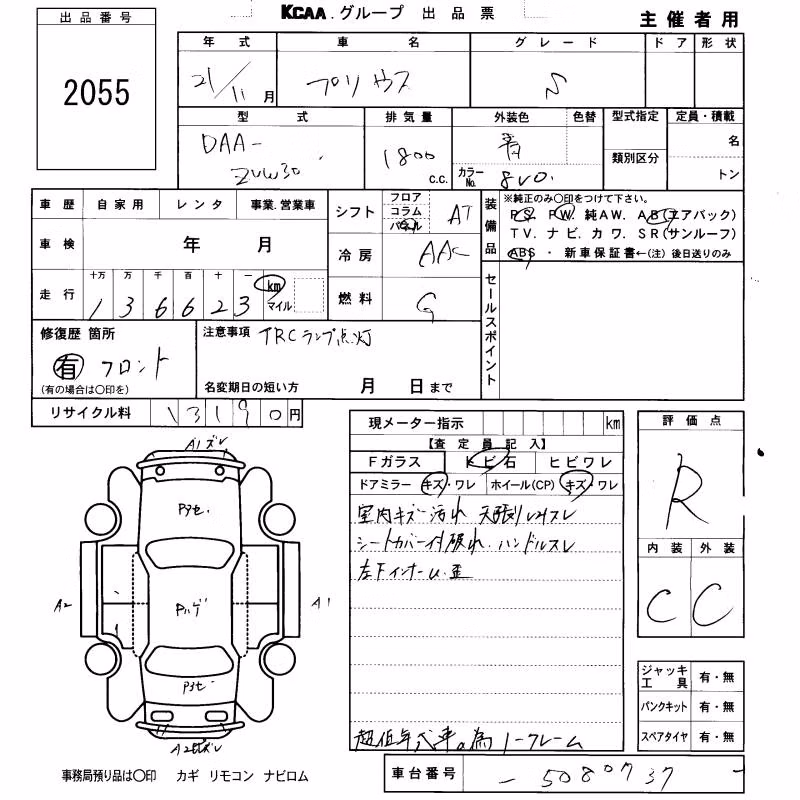 KCAA.グループ 出品票
主催者用
出品番号
2055
年式 車名 グレード ドア 形状
21/11月 プリウス S
型式 排気量 外装色 色替 型式指定 定員・積載
DAA- 1800 c.c. 青 名
ZVW30 カラーNo. 8V0. 類別区分 トン
車歴 自家用 レンタ 事業.営業車
車検 年 月
走行 十万 万 千 百 十 一 km マイル
136623
シフト フロア コラム パネル AT
冷房 AAC
燃料 G
装備品
※純正のみ〇印をつけて下さい。
PS. PW. 純AW. AB(エアバック)
TV. ナビ. カワ. SR(サンルーフ)
ABS ・ 新車保証書←(注) 後日送りのみ
セールスポイント
修復歴 箇所
有 フロント
(有の場合は〇印を)
注意事項 TRCランプ点灯
名変期日の短い方 月 日まで
リサイクル料 13190円
現メーター指示 km
【査定員記入】
Fガラス トビ石 ヒビワレ
ドアミラー キズ・ワレ ホイール(CP) キズ・ワレ
室内キズ・汚れ 天張りスレ
シートカバー付破れ.ハンドルスレ
左Fインナーひ.歪
超低年式車の為ノークレーム
評価点
R
内装 外装
C C
ジャッキ工具 有・無
パンクキット 有・無
スペアタイヤ 有・無
A1ズレ
Pアセ.
A2
Pハゲ
A1
Pアセ
事務局預り品は〇印 カギ リモコン ナビロム
車台番号 - 5080737 -